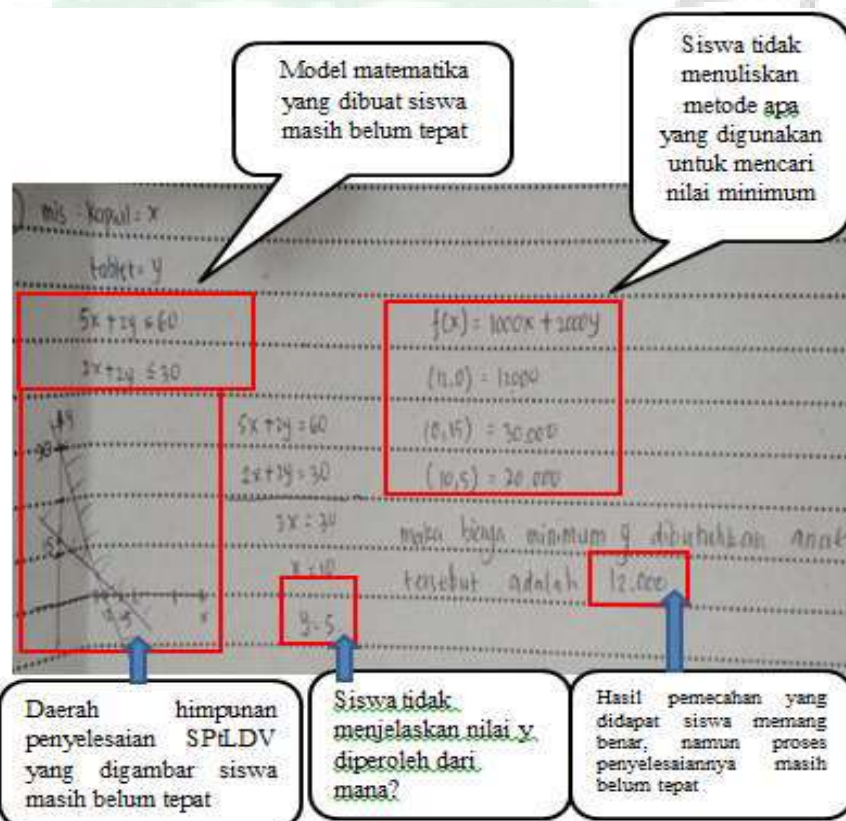 Model matematika
yang dibuat siswa
masih belum tepat
Siswa tidak
menuliskan
metode apa
yang digunakan
untuk mencari
nilai minimum
mis kapsul = x
tablet = y
5x + 2y ≤ 60
2x + 2y ≤ 30
f(x) = 1000x + 2000y
(12,0) = 12000
(0,15) = 30.000
(10,5) = 20.000
y
30
15
x
5x + 2y = 60
2x + 2y = 30
3x = 30
x = 10
y = 5
maka biaya minimum yg dibutuhkan anak
tersebut adalah 12.000
Daerah himpunan
penyelesaian SPtLDV
yang digambar siswa
masih belum tepat
Siswa tidak
menjelaskan nilai y
diperoleh dari
mana?
Hasil pemecahan yang
didapat siswa memang
benar, namun proses
penyelesaiannya masih
belum tepat